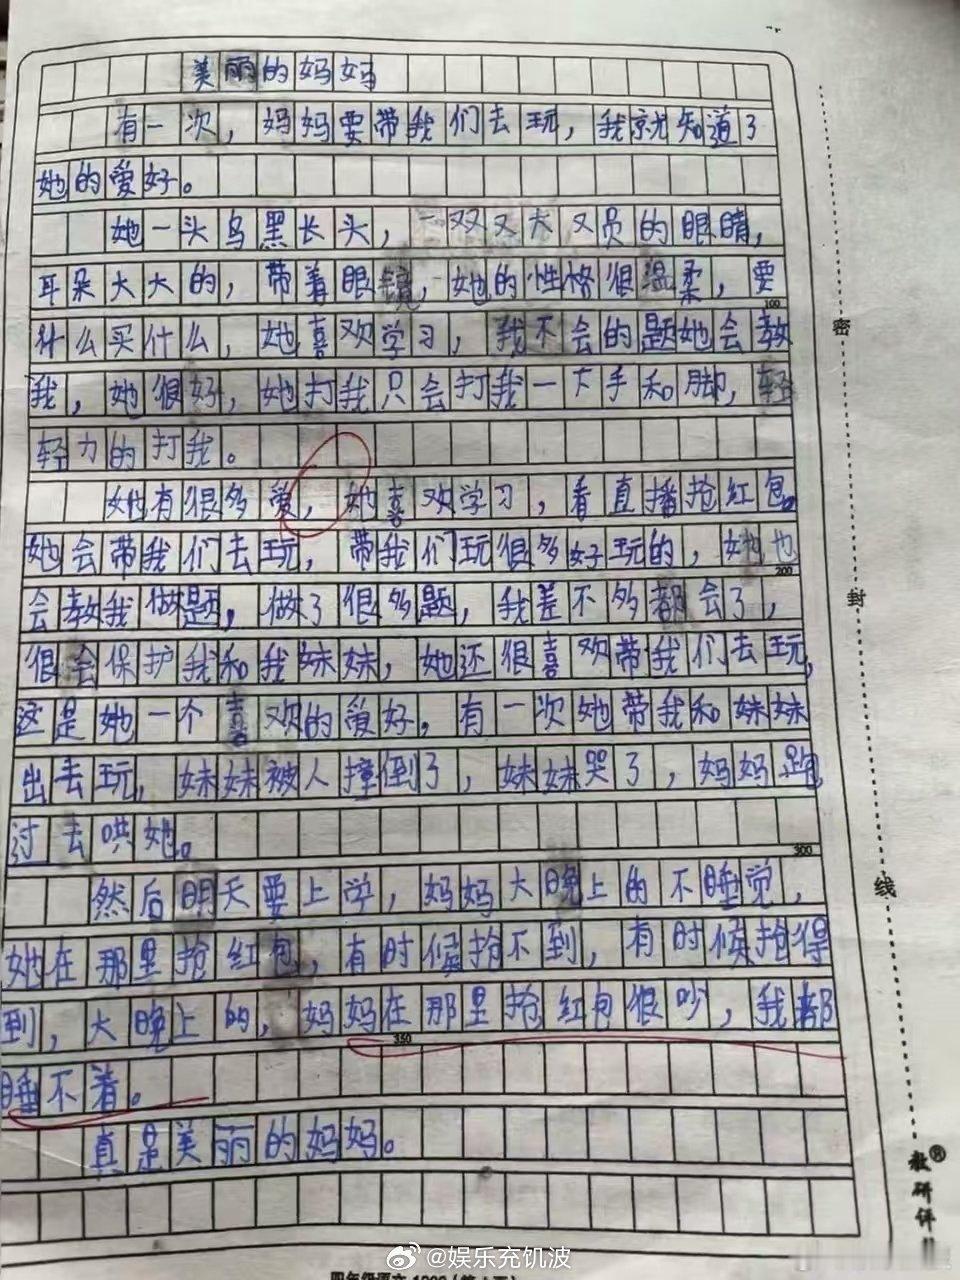 美丽的妈妈
有一次，妈妈要带我们去玩，我就知道了
她的爱好。
她一头乌黑长头，一双又大又员的眼睛，
耳朵大大的，带着眼镜，她的性格很温柔，要
什么买什么，她喜欢学习，我不会的题她会教
我，她很好，她打我只会打我一下手和脚，轻
轻力的打我。
她有很多爱，她喜欢学习，看直播抢红包。
她会带我们去玩，带我们玩很多好玩的，她也
会教我做题，做了很多题，我差不多都会了，
很会保护我和我妹妹，她还很喜欢带我们去玩，
这是她一个喜欢的爱好。有一次她带我和妹妹
出去玩，妹妹被人撞倒了，妹妹哭了，妈妈跑
过去哄她。
然后明天要上学，妈妈大晚上的不睡觉，
她在那里抢红包，有时候抢不到，有时候抢得
到，大晚上的，妈妈在那里抢红包很吵，我都
睡不着。
真是美丽的妈妈。
100
200
300
350
密
封
线
教研评
@娱乐充饥波